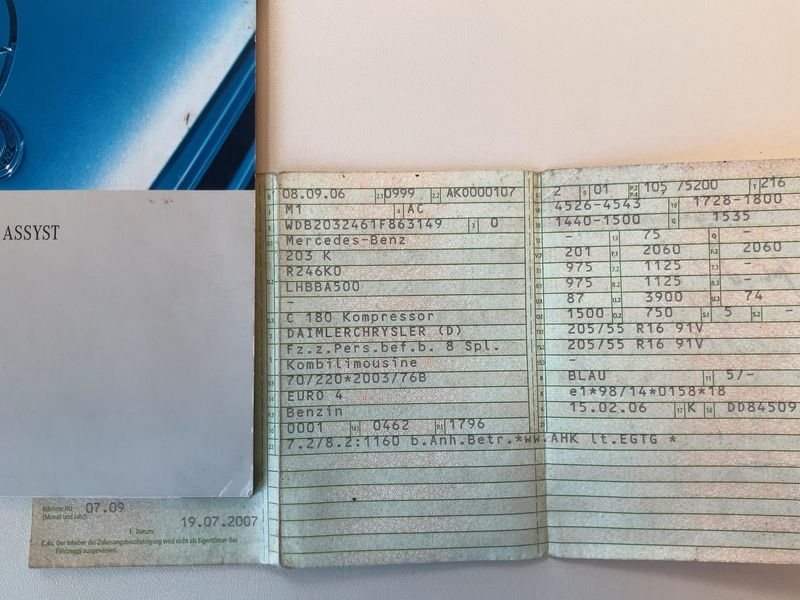 ASSYST
08.09.06 2.1 0999 2.2 AK0000107
M1 4 AC
WDB2032461F863149 3 0
Mercedes-Benz
203 K
R246K0
LHBBA500
-
C 180 Kompressor
DAIMLERCHRYSLER (D)
Fz.z.Pers.bef.b. 8 Spl.
Kombilimousine
70/220*2003/76B
EURO 4
Benzin
0001 0462 P.1 1796
7.2/8.2:1160 b.Anh.Betr.*ww.AHK lt.EGTG *
2 9 01 P.2 P.4 105 /5200 T 216
4526-4543 19 1728-1800
1440-1500 G 1535
- 13 75 Q -
201 F.1 2060 F.2 2060
975 7.2 1125 7.3 -
975 8.2 1125 8.3 -
87 U.2 3900 U.3 74
1500 O.2 750 S.1 5 S.2 -
205/55 R16 91V
205/55 R16 91V
-
BLAU 11 5/-
e1*98/14*0158*18
15.02.06 17 K 16 DD84509
Nächste HU 07.09
(Monat und Jahr)
19.07.2007
I Datum:
C.4c Der Inhaber der Zulassungsbescheinigung wird nicht als Eigentümer des
Fahrzeugs ausgewiesen.